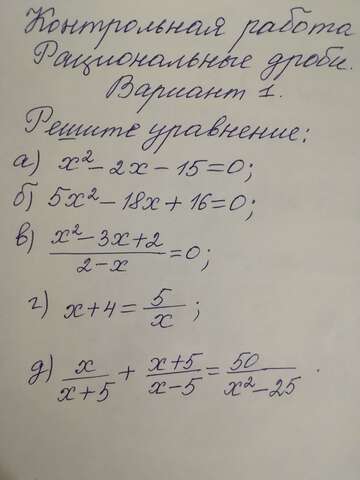 Контрольная работа
Рациональные дроби.
Вариант 1.
Решите уравнение:
а) x² - 2x - 15 = 0;
б) 5x² - 18x + 16 = 0;
в) (x² - 3x + 2)/(2 - x) = 0;
г) x + 4 = 5/x;
д) x/(x + 5) + (x + 5)/(x - 5) = 50/(x² - 25).